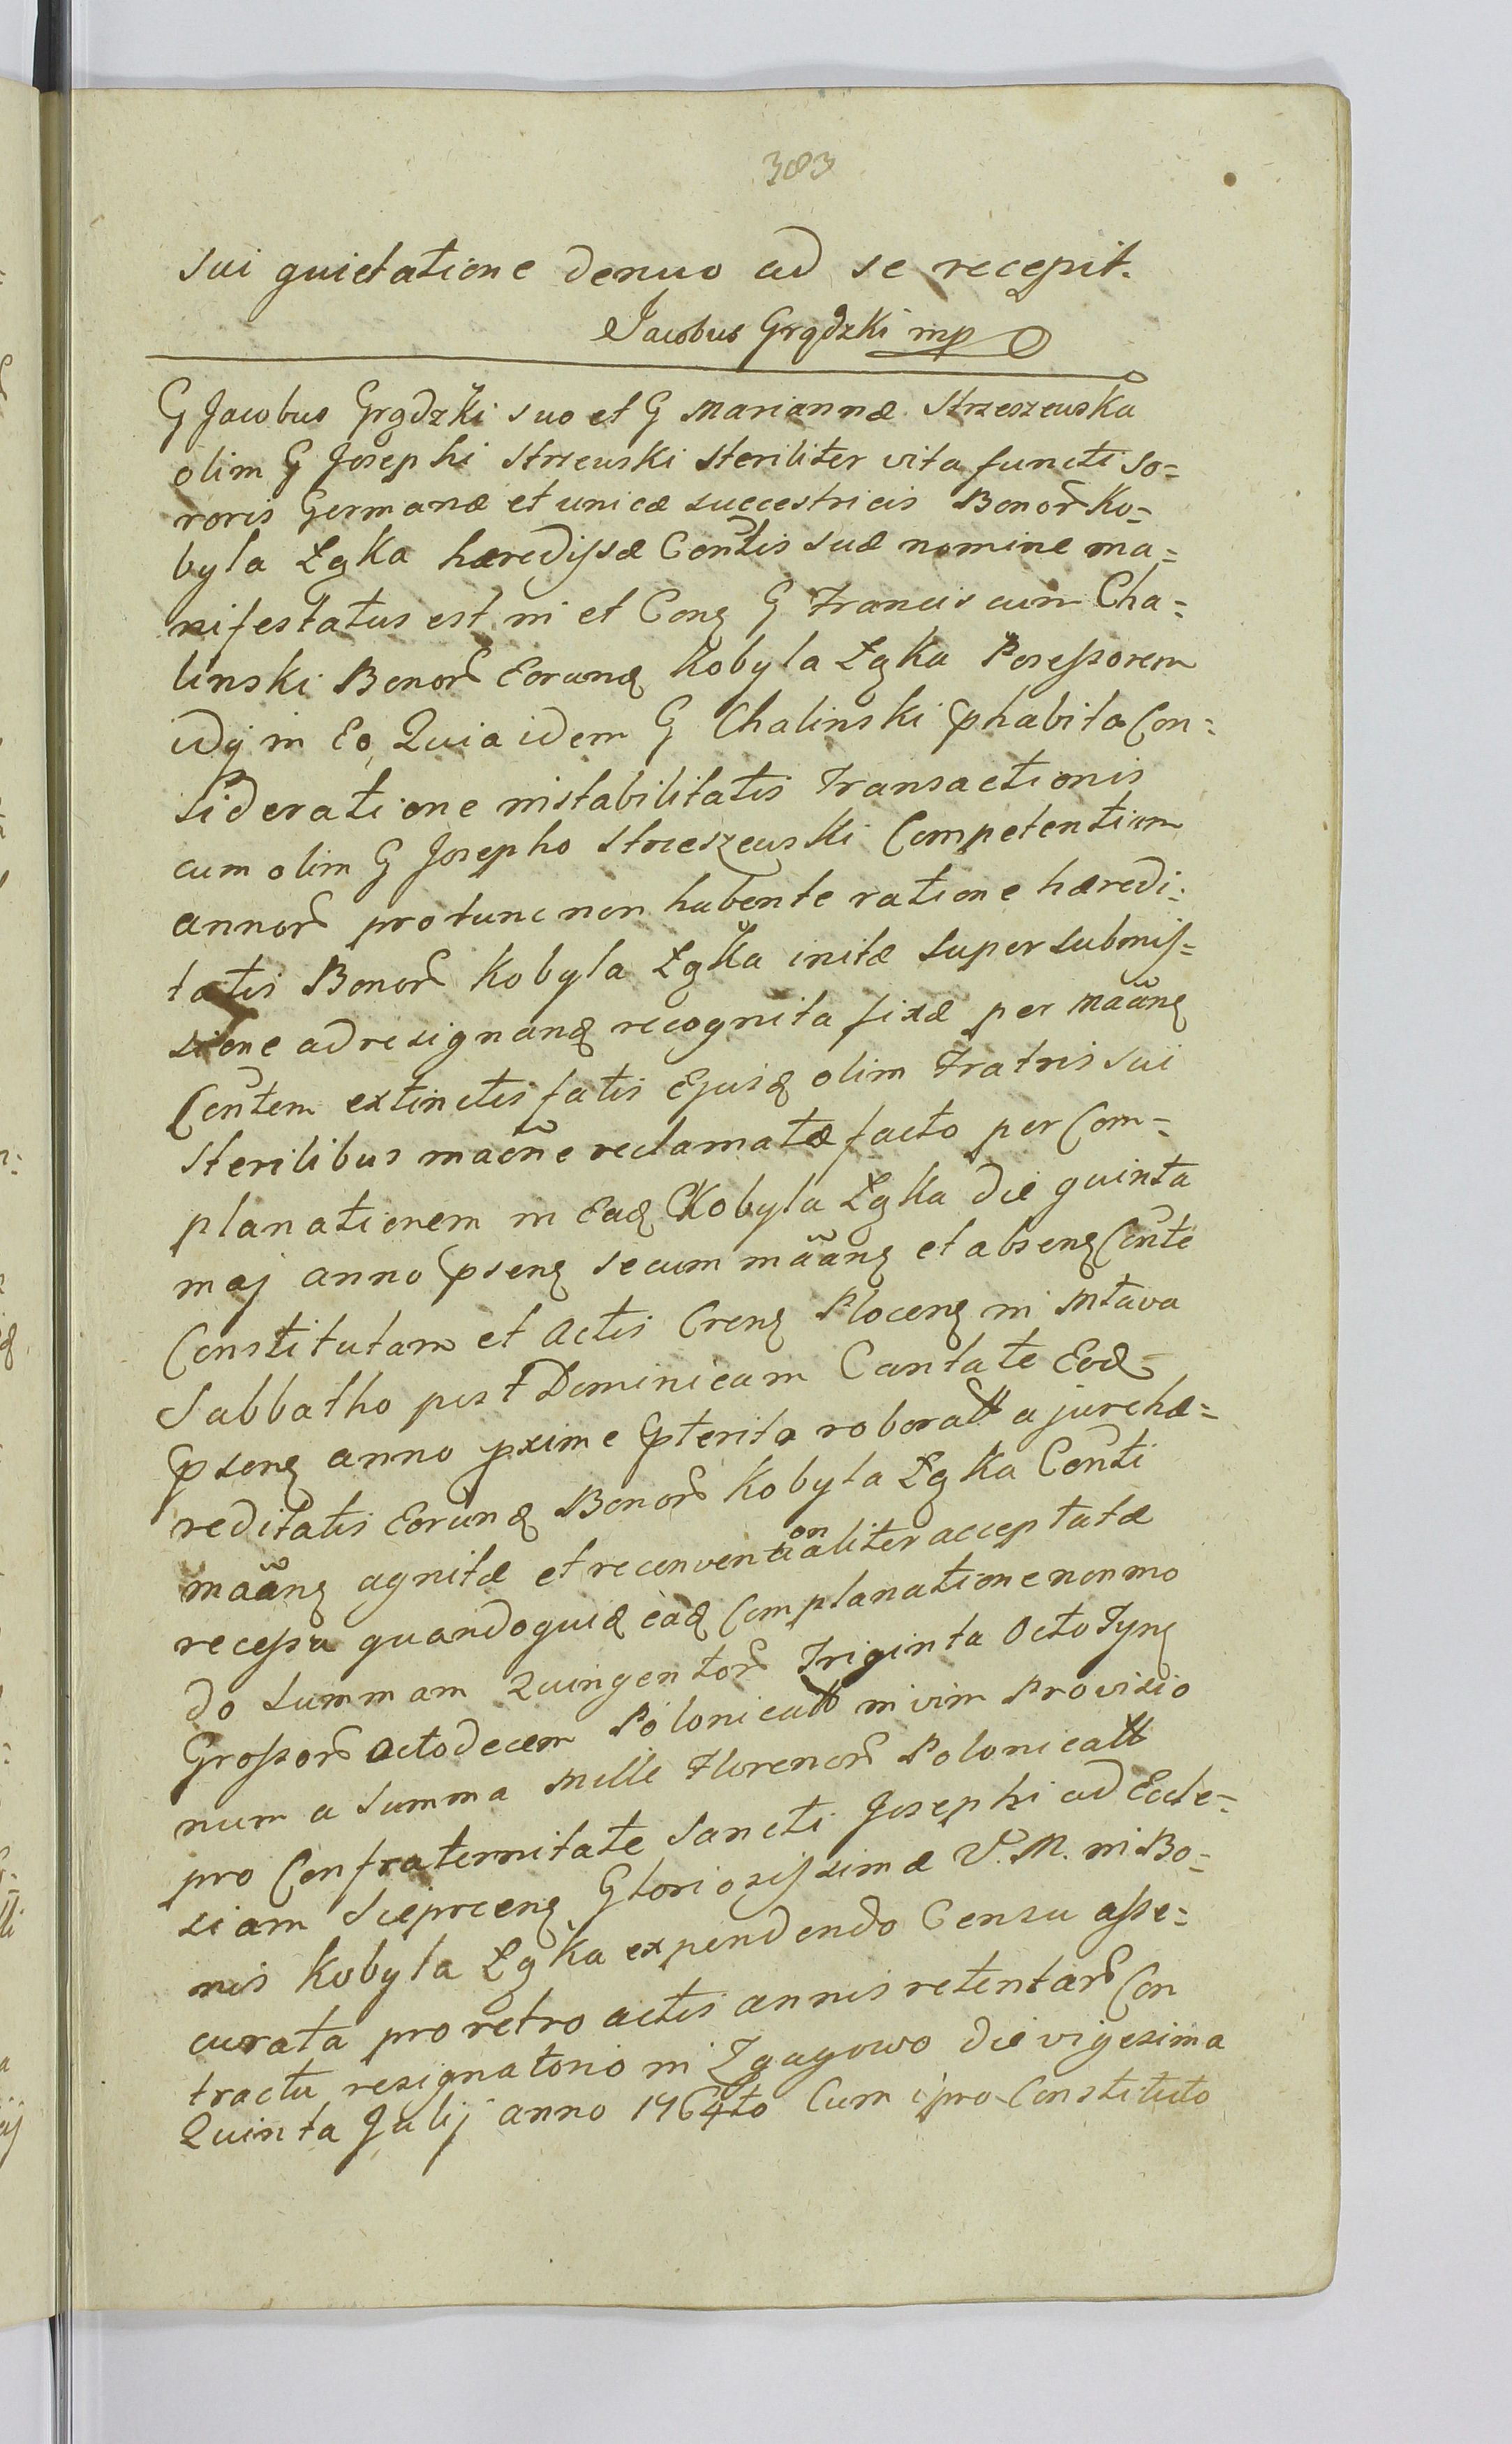 383
sui quietatione denuo ad se recepit.
Jacobus Grądzki mp
G Jacobus Grądzki suo et G Mariannæ Strzeszewska
olim G Josephi Strzewski steriliter vita functi so=
roris Germanæ et unicæ successtricis Bonor Ko=
byla Łąka hæredissæ Contis suæ nomine ma=
nifestatus est in et Conq G Franciscum Cha=
linski Bonor Eorunq Kobyla Łąka Possessorem
idq in Eo, Quia idem G Chalinski phabita Con=
sideratione instabilitatis Transactionis
cum olim G Josepho Strzeszewski Competentiam
annor protunc non habente ratione hæredi=
tatis Bonor Kobyla Łąka initæ super submis=
sione ad resignanq recognita fixæ per Maanq
Contem extinctis fatis Ejusq olim Fratris sui
sterilibus maone reclamatæ facto per Com=
planationem in Eaq Kobyla Łąka die quinta
maj anno pseng secum maanq et absenq Conte
Constitutam et Actis Crenq Ploceng in Mława
Sabbatho post Dominicam Cantate Eoq
pseng anno pxime pterito roboratt a jure hæ=
reditatis Eorunq Bonor Kobyla Łąka Conti
maanq agnitæ et reconventionaliter acceptatæ
recessu quandoquiq eaq Complanatione non mo
do summam Quingentor Triginta Octo Tynq
Grossor Octodecem Polonicatt in vim Provisio
num a summa Mille Florenor Polonicatt
pro Confraternitate Sancti Josephi ad Eccle=
siam Sieprceng Gloriosissimæ V. M. in Bo=
nis Kobyla Łąka expendendo Censu asse=
curata pro retro actis annis retentar Con
tractu resignatorio in Zgagowo die vigesima
Quinta Julij anno 1764to Cum ipro Constituto